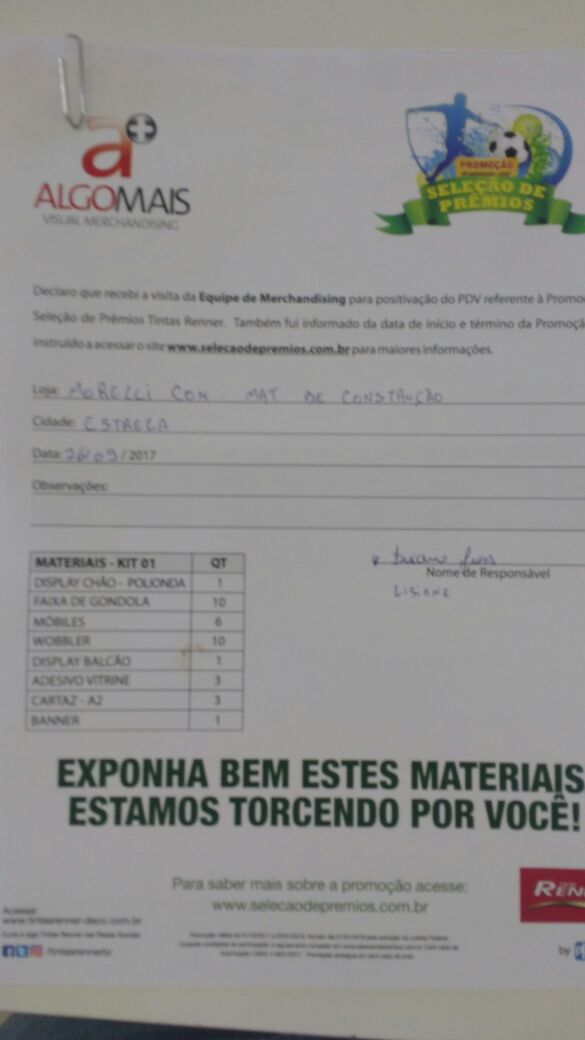 a+
ALGOMAIS
VISUAL MERCHANDISING
PROMOÇÃO
SELEÇÃO DE
PRÊMIOS
Declaro que recebi a visita da Equipe de Merchandising para positivação do PDV referente à Promo
Seleção de Prêmios Tintas Renner. Também fui informado da data de início e término da Promoçã
instruído a acessar o site www.selecaodepremios.com.br para maiores informações.
Loja: MORELLI COM. MAT DE CONSTRUÇÃO
Cidade: ESTRELA
Data: 26/09/2017
Observações:
MATERIAIS - KIT 01 QT
DISPLAY CHÃO - POLIONDA 1
FAIXA DE GONDOLA 10
MÓBILES 6
WOBBLER 10
DISPLAY BALCÃO 1
ADESIVO VITRINE 3
CARTAZ - A2 3
BANNER 1
Nome de Responsável
LISIANE
EXPONHA BEM ESTES MATERIAIS
ESTAMOS TORCENDO POR VOCÊ!
Para saber mais sobre a promoção acesse:
www.selecaodepremios.com.br
RENN
Acesse:
www.tintasrenner-deco.com.br
Curta e siga Tintas Renner nas Redes Sociais
/tintasrennerbr
by